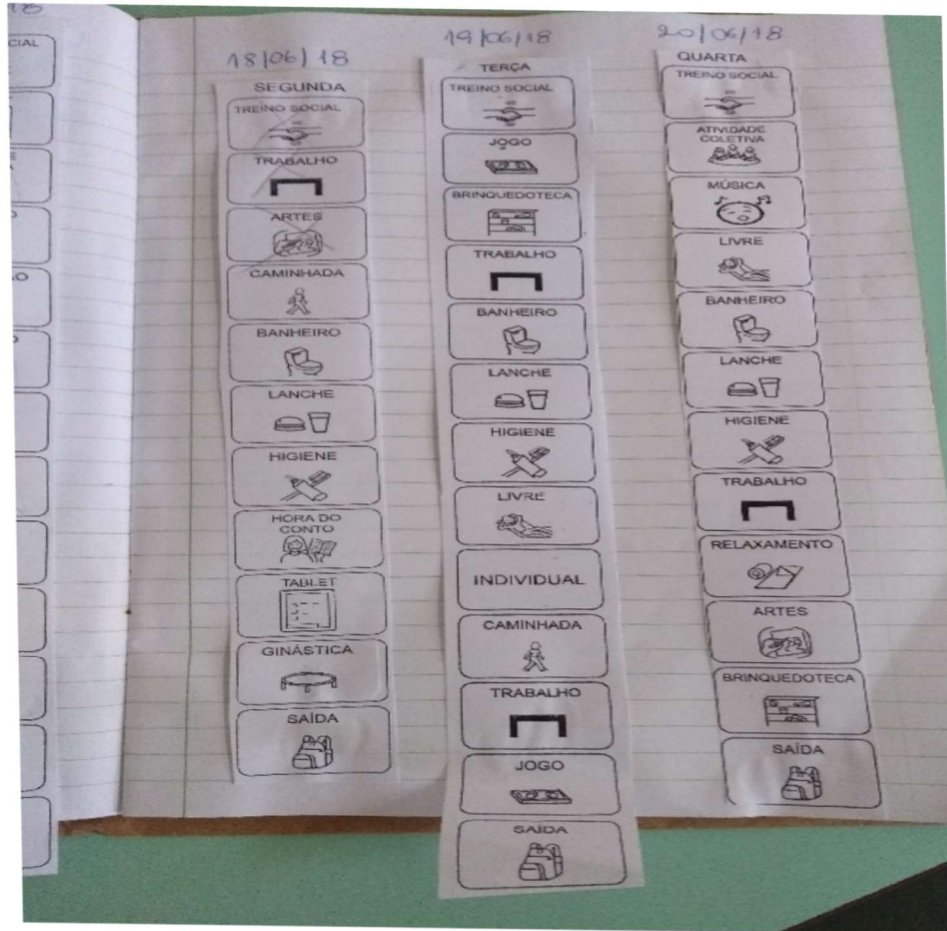 18
CIAL
18/06/18
SEGUNDA
TREINO SOCIAL
TRABALHO
ARTES
CAMINHADA
BANHEIRO
LANCHE
HIGIENE
HORA DO
CONTO
TABLET
GINÁSTICA
SAÍDA
19/06/18
TERÇA
TREINO SOCIAL
JOGO
BRINQUEDOTECA
TRABALHO
BANHEIRO
LANCHE
HIGIENE
LIVRE
INDIVIDUAL
CAMINHADA
TRABALHO
JOGO
SAÍDA
20/06/18
QUARTA
TREINO SOCIAL
ATIVIDADE
COLETIVA
MÚSICA
LIVRE
BANHEIRO
LANCHE
HIGIENE
TRABALHO
RELAXAMENTO
ARTES
BRINQUEDOTECA
SAÍDA